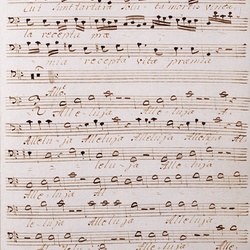 Cui sunt tartara
la recepta præ
mia recepta vitæ præmia
Alle
Alleluja
Alleluja Alleluja Alleluja Al
leluja Alleluja
Alleluja Al
leluja Alleluja Alleluja
Alleluja Alleluja